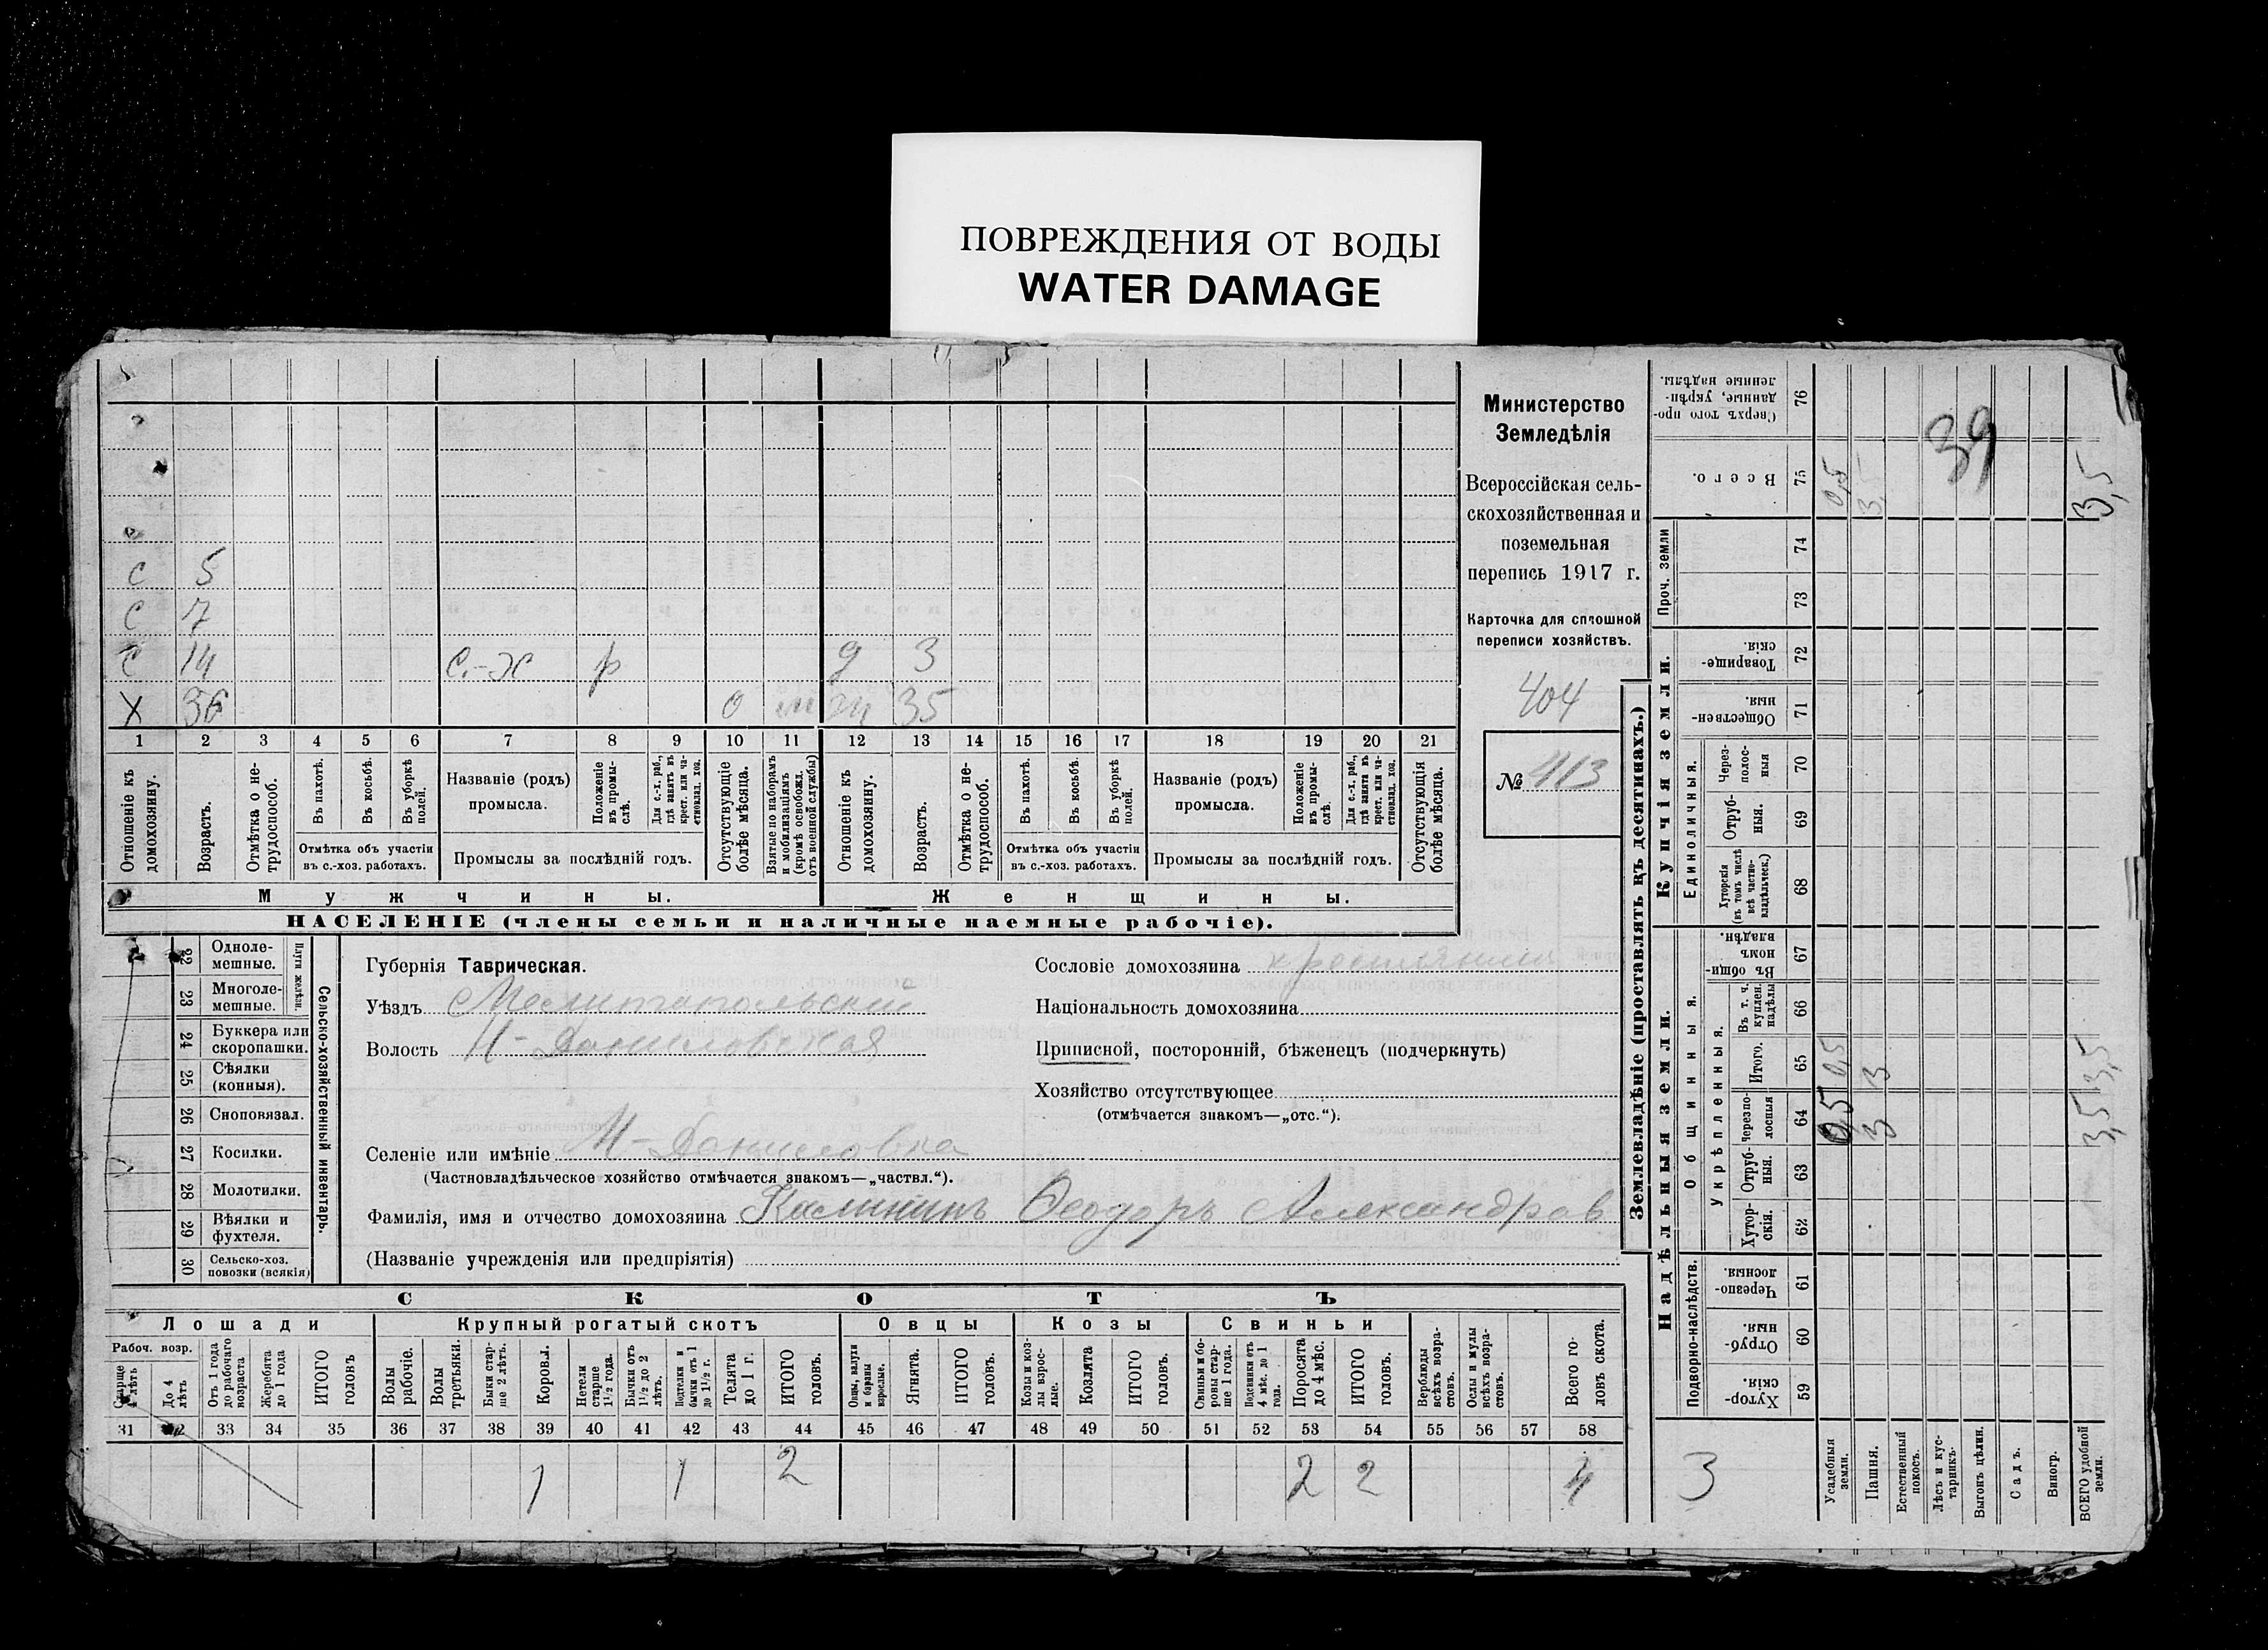 ПОВРЕЖДЕНИЯ ОТ ВОДЫ
WATER DAMAGE
с 5
с 7
с 14 с.-х р д 3
х 36 о ж 35
1 2 3 4 5 6 7 8 9 10 11 12 13 14 15 16 17 18 19 20 21
Отношеніе къ домохозяину.
Возрастъ.
Отмѣтка о не-трудоспособ.
Въ пахотѣ.
Въ косьбѣ.
Въ уборкѣ полей.
Отмѣтка объ участіи въ с.-хоз. работахъ.
Названіе (родъ) промысла.
Положеніе въ промы-слѣ.
Для с.-х. раб., гдѣ занятъ въ крест. или ча-стновлад. хоз.
Промыслы за послѣдній годъ.
Отсутствующіе болѣе мѣсяца.
Взятые по наборамъ и мобилизаціямъ (кромѣ освобожд. отъ военной службы)
Отношеніе къ домохозяину.
Возрастъ.
Отмѣтка о не-трудоспособ.
Въ пахотѣ.
Въ косьбѣ.
Въ уборкѣ полей.
Отмѣтка объ участіи въ с.-хоз. работахъ.
Названіе (родъ) промысла.
Положеніе въ промы-слѣ.
Для с.-х. раб., гдѣ занятъ въ крест. или ча-стновлад. хоз.
Промыслы за послѣдній годъ.
Отсутствующія болѣе мѣсяца.
Мужчины. Женщины.
НАСЕЛЕНІЕ (члены семьи и наличные наемные рабочіе).
Министерство
Земледѣлія
Всероссійская сель-
скохозяйственная и
поземельная
перепись 1917 г.
Карточка для сплошной
переписи хозяйствъ.
404
№ 413
22 Одноле-мешные.
23 Многоле-мешные.
Плуги желѣзн.
24 Буккера или скоропашки.
25 Сѣялки (конныя).
26 Сноповязал.
27 Косилки.
28 Молотилки.
29 Вѣялки и фухтеля.
30 Сельско-хоз. повозки (всякія)
Сельско-хозяйственный инвентарь.
Губернія Таврическая.
Уѣздъ Мелитопольскій
Волость Н-Даниловская
Сословіе домохозяина крестьянинъ
Національность домохозяина
Приписной, посторонній, бѣженецъ (подчеркнуть)
Хозяйство отсутствующее
(отмѣчается знакомъ—„отс.“).
Селеніе или имѣніе Н-Даниловка
(Частновладѣльческое хозяйство отмѣчается знакомъ—„частвл.“).
Фамилія, имя и отчество домохозяина Калининъ Ѳеодоръ Александров
(Названіе учрежденія или предпріятія)
СКОТЪ
Лошади Крупный рогатый скотъ Овцы Козы Свиньи
Рабоч. возр.
Старше 4 лѣтъ
До 4 лѣтъ
Отъ 1 года до рабочаго возраста
Жеребята до 1 года
ИТОГО головъ
Волы рабочіе.
Волы третьяки.
Быки стар-ше 2 лѣтъ.
Коровы.
Нетели старше 1½ года.
Бычки отъ 1½ до 2 лѣтъ.
Подтелки и бычки отъ 1 до 1½ г.
Телята до 1 г.
ИТОГО головъ.
Овцы, валухи и бараны взрослые.
Ягнята.
ИТОГО головъ.
Козы и коз-лы взрос-лые.
Козлята
ИТОГО головъ.
Свиньи и бо-ровы стар-ше 1 года.
Подсвинки отъ 4 мѣс. до 1 года.
Поросята до 4 мѣс.
ИТОГО головъ.
Верблюды всѣхъ возра-стовъ.
Ослы и мулы всѣхъ возра-стовъ.
Всего го-ловъ скота.
31 32 33 34 35 36 37 38 39 40 41 42 43 44 45 46 47 48 49 50 51 52 53 54 55 56 57 58
1 1 2 2 2 4
Землевладѣніе (проставлять въ десятинахъ.)
Надѣльныя земли. Купчія земли. Проч. земли
Подворно-наслѣдств.
Общинныя.
Укрѣпленныя.
Единоличныя.
59 Хутор-скія.
60 Отруб-ныя.
61 Черезпо-лосныя.
62 Хутор-скія.
63 Отруб-ныя.
64 Черезпо-лосныя 0,5 3 3,5
65 Итого. 0,5 3 3,5
66 Въ т. ч. куплен. надѣлы
67 Въ общин-номъ владѣн.
68 Хуторскія (въ томъ числѣ всѣ частно-владѣльческ.)
69 Отруб-ныя.
70 Через-полос-ныя
71 Обществен-ныя.
72 Товарище-скія.
73
74
75 Всего. 0,5 3,5
76 Сверхъ того про-данные, укрѣп-ленные надѣлы.
39
3,5
3
Усадебныя земли.
Пашня.
Естественный покосъ.
Лѣсъ и кус-тарникъ.
Выгонъ цѣлин.
Садъ.
Виногр.
ВСЕГО удобной земли.